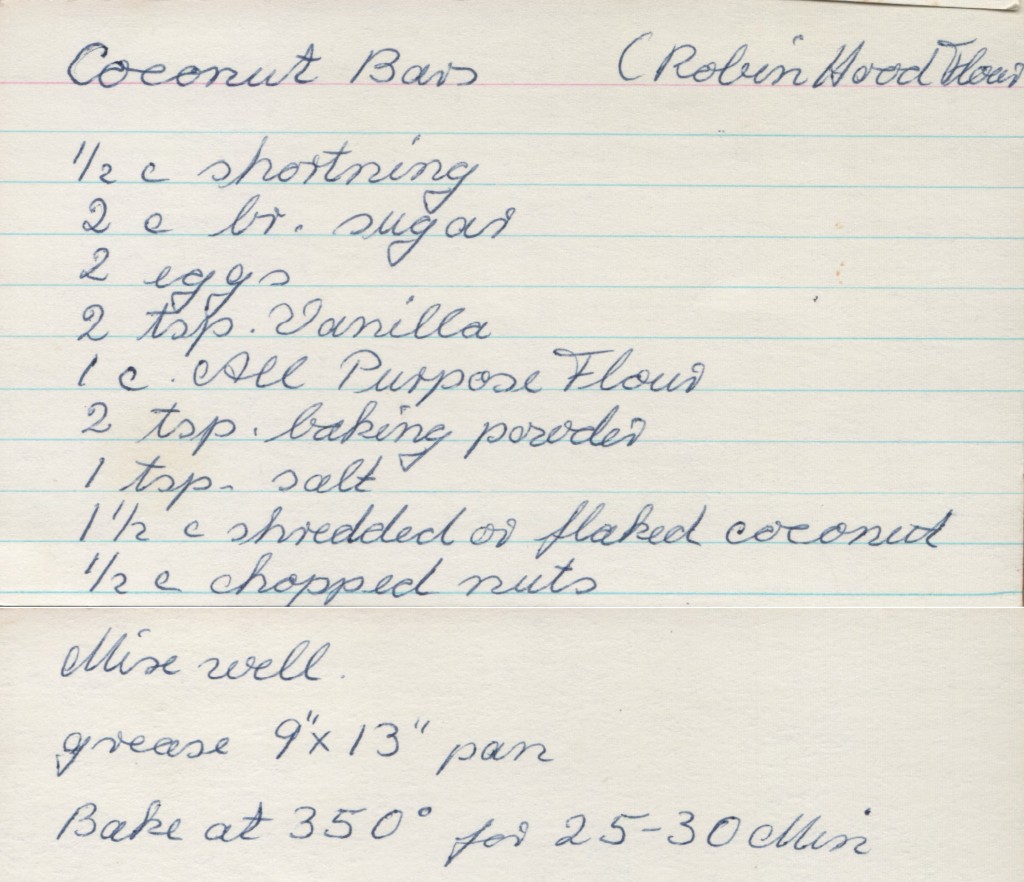 Coconut Bars (Robin Hood Flour
1/2 c shortning
2 c br. sugar
2 eggs
2 tsp. Vanilla
1 c. All Purpose Flour
2 tsp. baking powder
1 tsp. salt
1 1/2 c shredded or flaked coconut
1/2 c chopped nuts
Mix well.
grease 9"x13" pan
Bake at 350° for 25-30 Min